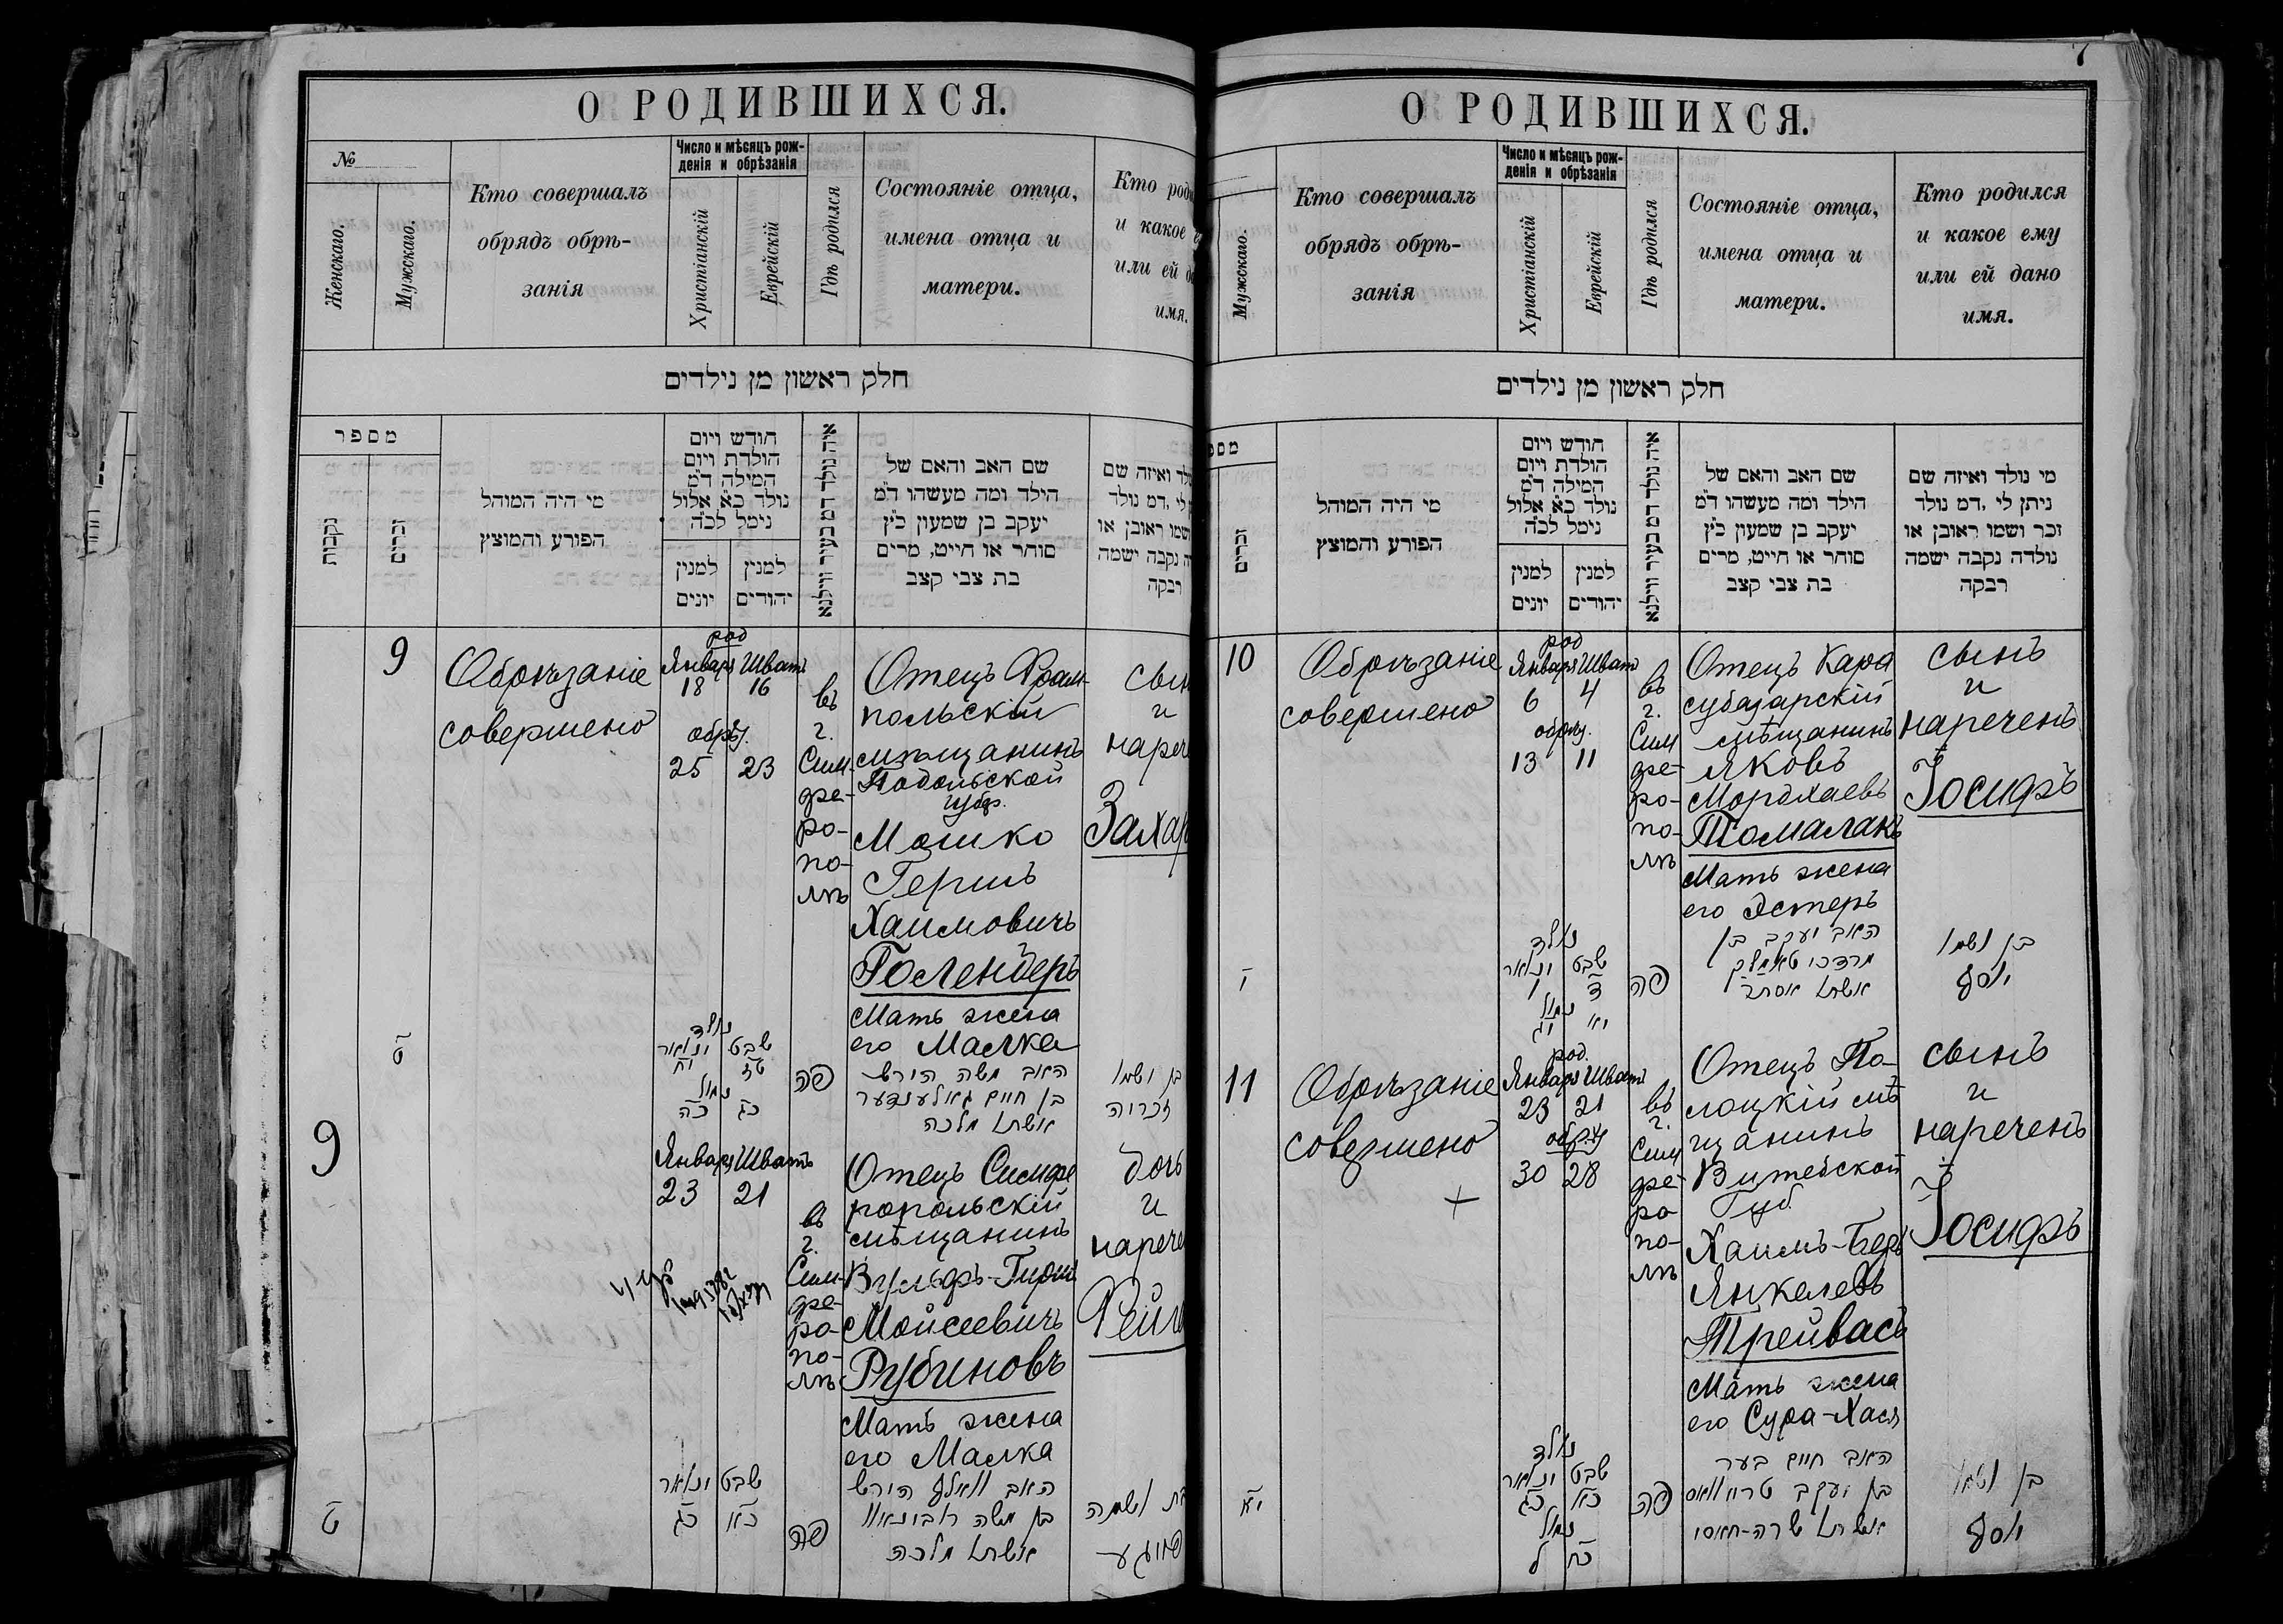 7
О РОДИВШИХСЯ.
№
Женскаго.
Мужскаго.
Кто совершалъ
обрядъ обрѣ-
занія
Число и мѣсяцъ рож-
денія и обрѣзанія
Христіанскій
Еврейскій
Гдѣ родился
Состояніе отца,
имена отца и
матери.
Кто роди
и какое е
или ей да
имя.
חלק ראשון מן נילדים
מספר
נקבות
זכרים
מי היה המוהל
הפורע והמוצץ
חודש ויום
הולדת ויום
המילה ד"מ
נולד כא אלול
נימל לכ"ה
למנין
יונים
למנין
יהודים
איה נולד דמ בעיר ווילנא
שם האב והאם של
הילד ומה מעשהו ד"מ
יעקב בן שמעון כ"ץ
סוחר או חייט, מרים
בת צבי קצב
ולד ואיזה שם
לי, דמ נולד
ושמו ראובן או
ה נקבה ישמה
רבקה
9
Обрѣзаніе
совершено
род
Января Шватъ
18 16
обрѣз.
25 23
въ
г.
Сим-
фе-
ро-
по-
лѣ
Отецъ Фрам-
польскій
мѣщанинъ
Подольской
губ.
Мошко
Гершъ
Хаимовичъ
Голендеръ
Мать жена
его Малка
сын
и
нарече
Захар
ט
נולד
ינואר שבט
יח טז
נמול
כה כג
פה
האב משה הירש
בן חיים גאלענדער
אשתו מלכה
בן ושמו
זכריה
9
Января Шватъ
23 21
въ
г.
Сим-
фе-
ро-
по-
лѣ
Отецъ Симфе
ропольскій
мѣщанинъ
Вульфъ-Гирш
Мойсеевичъ
Рубиновъ
Мать жена
его Малка
дочь
и
нарече
Фейг
ט
ינואר שבט
כג כא
פה
האב וואלף הירש
בן משה רובינאוו
אשתו מלכה
בת ושמה
פייגע
О РОДИВШИХСЯ.
Мужскаго.
Кто совершалъ
обрядъ обрѣ-
занія
Число и мѣсяцъ рож-
денія и обрѣзанія
Христіанскій
Еврейскій
Гдѣ родился
Состояніе отца,
имена отца и
матери.
Кто родился
и какое ему
или ей дано
имя.
חלק ראשון מן נילדים
מספ
זכרים
מי היה המוהל
הפורע והמוצץ
חודש ויום
הולדת ויום
המילה ד"מ
נולד כא אלול
נימל לכ"ה
למנין
יונים
למנין
יהודים
איה נולד דמ בעיר ווילנא
שם האב והאם של
הילד ומה מעשהו ד"מ
יעקב בן שמעון כ"ץ
סוחר או חייט, מרים
בת צבי קצב
מי נולד ואיזה שם
ניתן לי, דמ נולד
זכר ושמו ראובן או
נולדה נקבה ישמה
רבקה
10
Обрѣзаніе
совершено
род
Января Шват
6 4
обрѣз.
13 11
въ
г.
Сим
фе-
ро-
по-
лѣ
Отецъ Кара
субазарскій
мѣщанинъ
Яковъ
Мордхаевъ
Томалакъ
Мать жена
его Эстеръ
сынъ
и
нареченъ
Іосифъ
י
נולד
ינואר שבט
ו ד
נמול
יג יא
פה
האב יעקב בן
מרדכי טאמלק
אשתו אסתר
בן ושמו
יוסף
11
Обрѣзаніе
совершено
род.
Января Шватъ
23 21
обрѣз
30 28
въ
г.
Сим
фе-
ро
по-
лѣ
Отецъ По-
лоцкій мѣ
щанинъ
Витебской
Губ.
Хаимъ-Беръ
Янкелевъ
Трейвасъ
Мать жена
его Сура-Хася
сынъ
и
нареченъ
Іосифъ
יא
נולד
ינואר שבט
כג כא
נמול
ל כח
פה
האב חיים בער
בן יעקב טרייוואס
אשתו שרה-חאסי
בן ושמו
יוסף